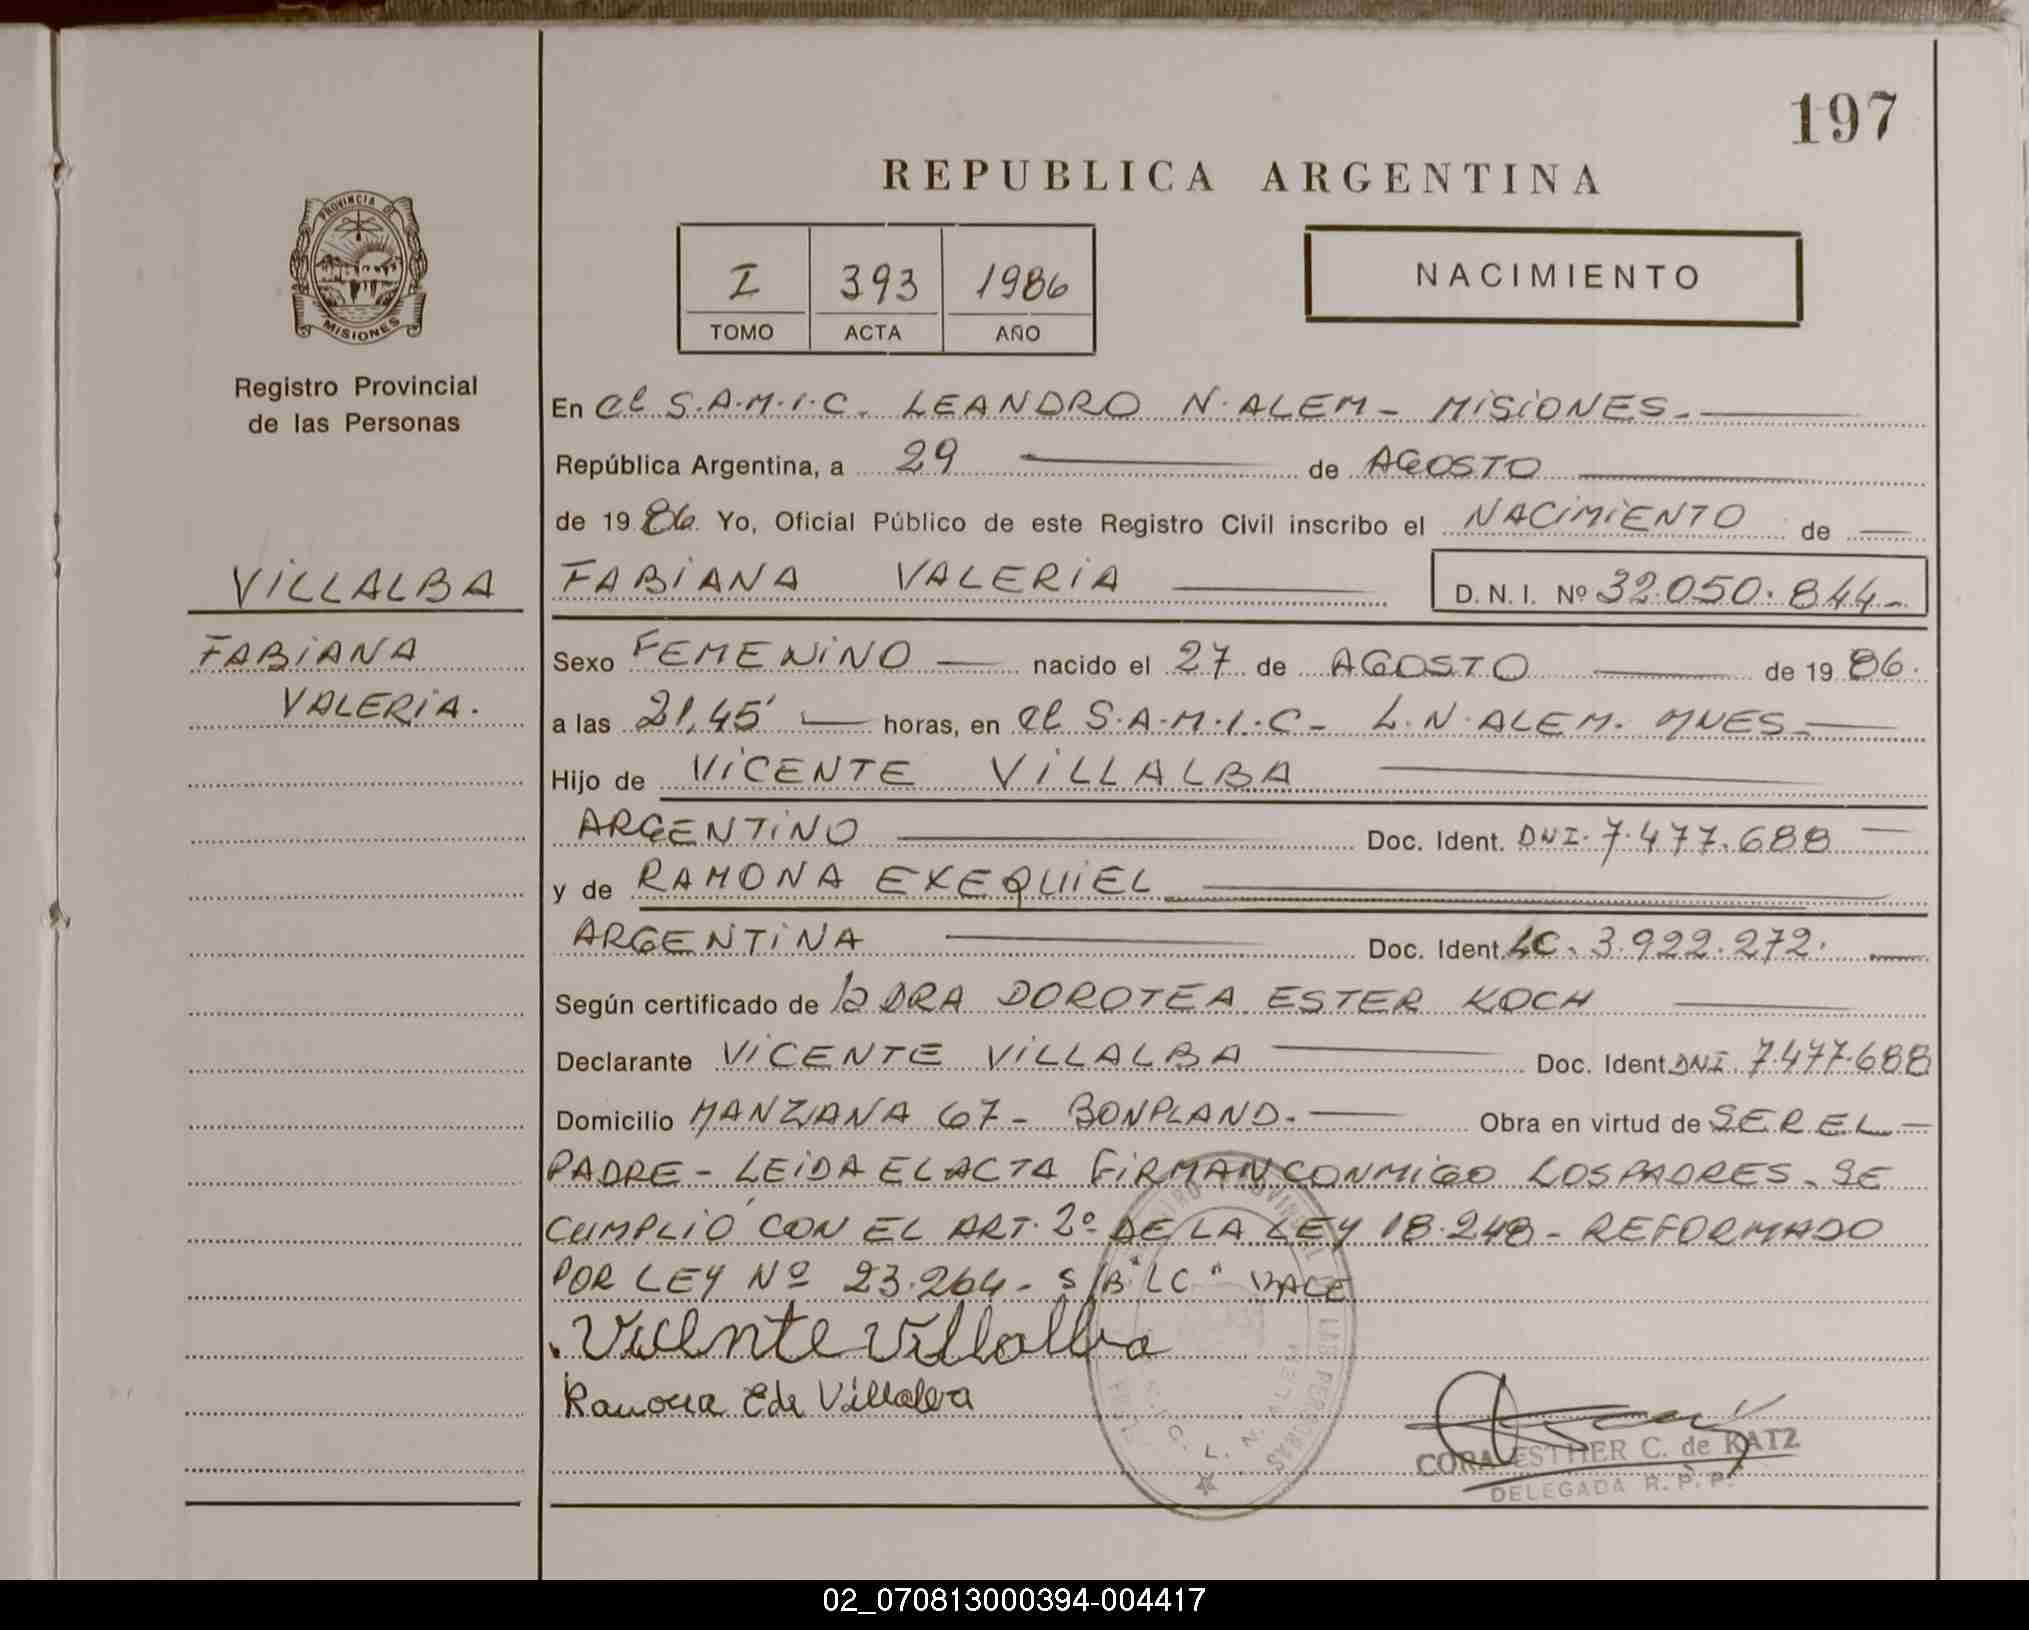 197
REPUBLICA ARGENTINA
I 393 1986
TOMO ACTA AÑO
NACIMIENTO
PROVINCIA DE
MISIONES
Registro Provincial
de las Personas
VILLALBA
FABIANA
VALERIA.
En el S.A.M.I.C. LEANDRO N. ALEM - MISIONES.
República Argentina, a 29 de AGOSTO
de 1986. Yo, Oficial Público de este Registro Civil inscribo el NACIMIENTO de
FABIANA VALERIA D.N.I. Nº 32.050.844-
Sexo FEMENINO nacido el 27 de AGOSTO de 1986.
a las 21,45' horas, en el S.A.M.I.C- L.N.ALEM. MNES-
Hijo de VICENTE VILLALBA
ARGENTINO Doc. Ident. DNI. 7.477.688
y de RAMONA EXEQUIEL
ARGENTINA Doc. Ident. LC. 3.922.272.
Según certificado de la DRA DOROTEA ESTER KOCH
Declarante VICENTE VILLALBA Doc. Ident DNI 7.477.688
Domicilio MANZANA 67- BONPLAND. Obra en virtud de SER EL
PADRE - LEIDA EL ACTA FIRMAN CONMIGO LOS PADRES. SE
CUMPLIO CON EL ART. 2º DE LA LEY 18.248- REFORMADO
POR LEY Nº 23.264- S/B "LC" VALE
Vicente Villalba
Ramona Villalba
CORA ESTHER C. de KATZ
DELEGADA R. P. P.
02_070813000394-004417